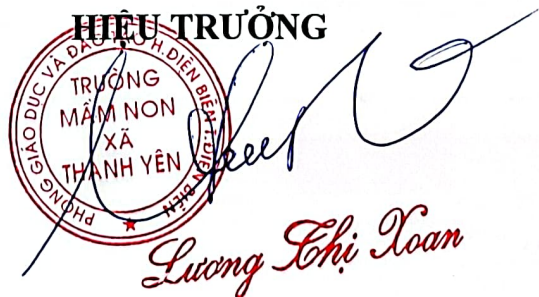 HIỆU TRƯỞNG
PHÒNG GIÁO DỤC VÀ ĐÀO TẠO H.ĐIỆN BIÊN T.ĐIỆN BIÊN
TRƯỜNG
MẦM NON
XÃ
THANH YÊN
Lương Thị Xoan